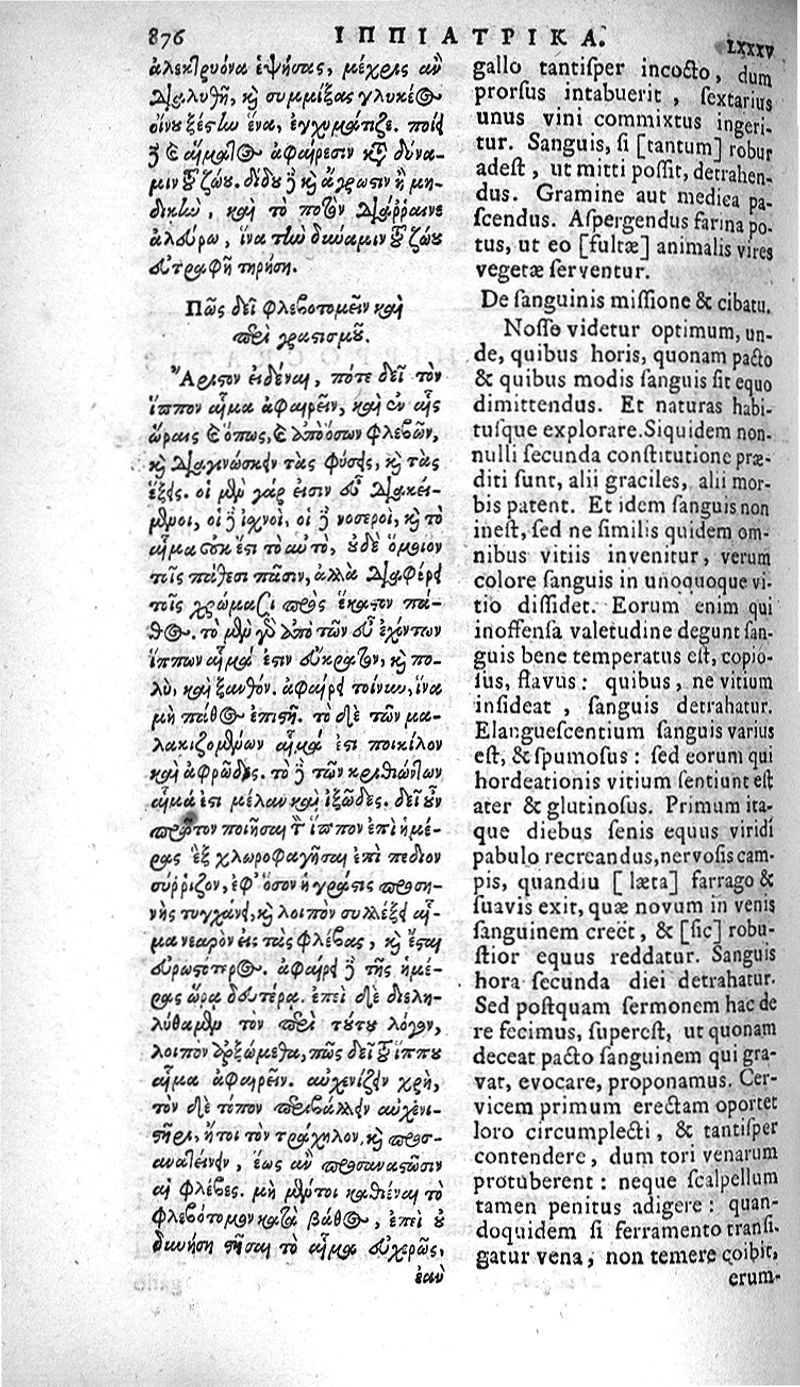 876 ΙΠΠΙΑΤΡΙΚΑ. LXXXV
ἀλεκτρυόνα ἑψήσας, μέχρις ἂν
διαλυθῇ, καὶ συμμίξας γλυκέος
οἴνου ξέστην ἕνα, ἐγχυμάτιζε. ποίει
δὲ καὶ αἵματος ἀφαίρεσιν κατὰ δύνα-
μιν τοῦ ζώου. δίδου δὲ καὶ ἄγρωστιν ἢ μη-
δικὴν, καὶ τὸ ποτὸν διάρραινε
ἀλεύρῳ, ἵνα τὴν δύναμιν τοῦ ζώου
εὐτραφῆ τηρήσῃ.
Πῶς δεῖ φλεβοτομεῖν καὶ
περὶ γραστισμοῦ.
Ἄριστον εἰδέναι, πότε δεῖ τὸν
ἵππον αἷμα ἀφαιρεῖν, καὶ ἐν αἷς
ὥραις καὶ ὅπως, καὶ ἀπὸ ὅσων φλεβῶν,
καὶ διαγινώσκειν τὰς φύσεις, καὶ τὰς
ἕξεις. οἱ μὲν γάρ εἰσιν εὖ διακεί-
μενοι, οἱ δὲ ἰσχνοὶ, οἱ δὲ νοσεροὶ, καὶ τὸ
αἷμα οὐκ ἔστι τὸ αὐτὸ, οὐδὲ ὅμοιον
τοῖς πάθεσι πᾶσιν, ἀλλὰ διαφέρει
τοῖς χρώμασι πρὸς ἕκαστον πά-
θος. τὸ μὲν γὰρ ἀπὸ τῶν εὖ ἐχόντων
ἵππων αἷμά ἐστιν εὔκρατον, καὶ πο-
λὺ, καὶ ξανθόν. ἀφαίρει τοίνυν, ἵνα
μὴ πάθος ἐπιστῇ. τὸ δὲ τῶν μα-
λακιζομένων αἷμά ἐστι ποικίλον
καὶ ἀφρῶδες. τὸ δὲ τῶν κριθιώντων
αἷμά ἐστι μέλαν καὶ ἰξῶδες. δεῖ οὖν
πρῶτον ποιῆσαι τὸν ἵππον ἐπὶ ἡμέ-
ρας ἓξ χλωροφαγῆσαι ἐπὶ πεδίον
σύρριζον, ἐφ' ὅσον ἡ γράστις προση-
νὴς τυγχάνει, καὶ λοιπὸν συλλέξει αἷ-
μα νεαρὸν εἰς τὰς φλέβας, καὶ ἔσται
εὐρωστότερος. ἀφαίρει δὲ τῆς ἡμέ-
ρας ὥρα δευτέρα. ἐπεὶ δὲ διελη-
λύθαμεν τὸν περὶ τούτου λόγον,
λοιπὸν ἀρξώμεθα, πῶς δεῖ τοῦ ἵππου
αἷμα ἀφαιρεῖν. αὐχενίζειν χρὴ,
τὸν δὲ τόπον περιβάλλειν αὐχενι-
στῆρι, ἤτοι τὸν τράχηλον, καὶ προσ-
ανατείνειν, ἕως ἂν προσαναστῶσιν
αἱ φλέβες. μὴ μέντοι καθιέναι τὸ
φλεβότομον κατὰ βάθος, ἐπεὶ οὐ
δυνήσῃ στῆσαι τὸ αἷμα εὐχερῶς,
ἐὰν
gallo tantiſper incocto, dum
prorſus intabuerit, ſextarius
unus vini commixtus ingeri-
tur. Sanguis, ſi [tantum] robur
adeſt, ut mitti poſſit, detrahen-
dus. Gramine aut medica pa-
ſcendus. Aſpergendus farina po-
tus, ut eo [fultæ] animalis vires
vegetæ ſerventur.
De ſanguinis miſſione & cibatu.
Noſſe videtur optimum, un-
de, quibus horis, quonam pacto
& quibus modis ſanguis ſit equo
dimittendus. Et naturas habi-
tuſque explorare. Siquidem non-
nulli ſecunda conſtitutione præ-
diti ſunt, alii graciles, alii mor-
bis patent. Et idem ſanguis non
ineſt, ſed ne ſimilis quidem om-
nibus vitiis invenitur, verum
colore ſanguis in unoquoque vi-
tio diſſidet. Eorum enim qui
inoffenſa valetudine degunt ſan-
guis bene temperatus eſt, copio-
ſus, flavus: quibus, ne vitium
inſideat, ſanguis detrahatur.
Elangueſcentium ſanguis varius
eſt, & ſpumoſus: ſed eorum qui
hordeationis vitium ſentiunt eſt
ater & glutinoſus. Primum ita-
que diebus ſenis equus viridi
pabulo recreandus, nervoſis cam-
pis, quandiu [læta] farrago &
ſuavis exit, quæ novum in venis
ſanguinem creet, & [ſic] robu-
ſtior equus reddatur. Sanguis
hora ſecunda diei detrahatur.
Sed poſtquam ſermonem hac de
re fecimus, ſupereſt, ut quonam
deceat pacto ſanguinem qui gra-
vat, evocare, proponamus. Cer-
vicem primum erectam oportet
loro circumplecti, & tantiſper
contendere, dum tori venarum
protuberent: neque ſcalpellum
tamen penitus adigere: quan-
doquidem ſi ferramento tranſi-
gatur vena, non temere coibit,
erum-